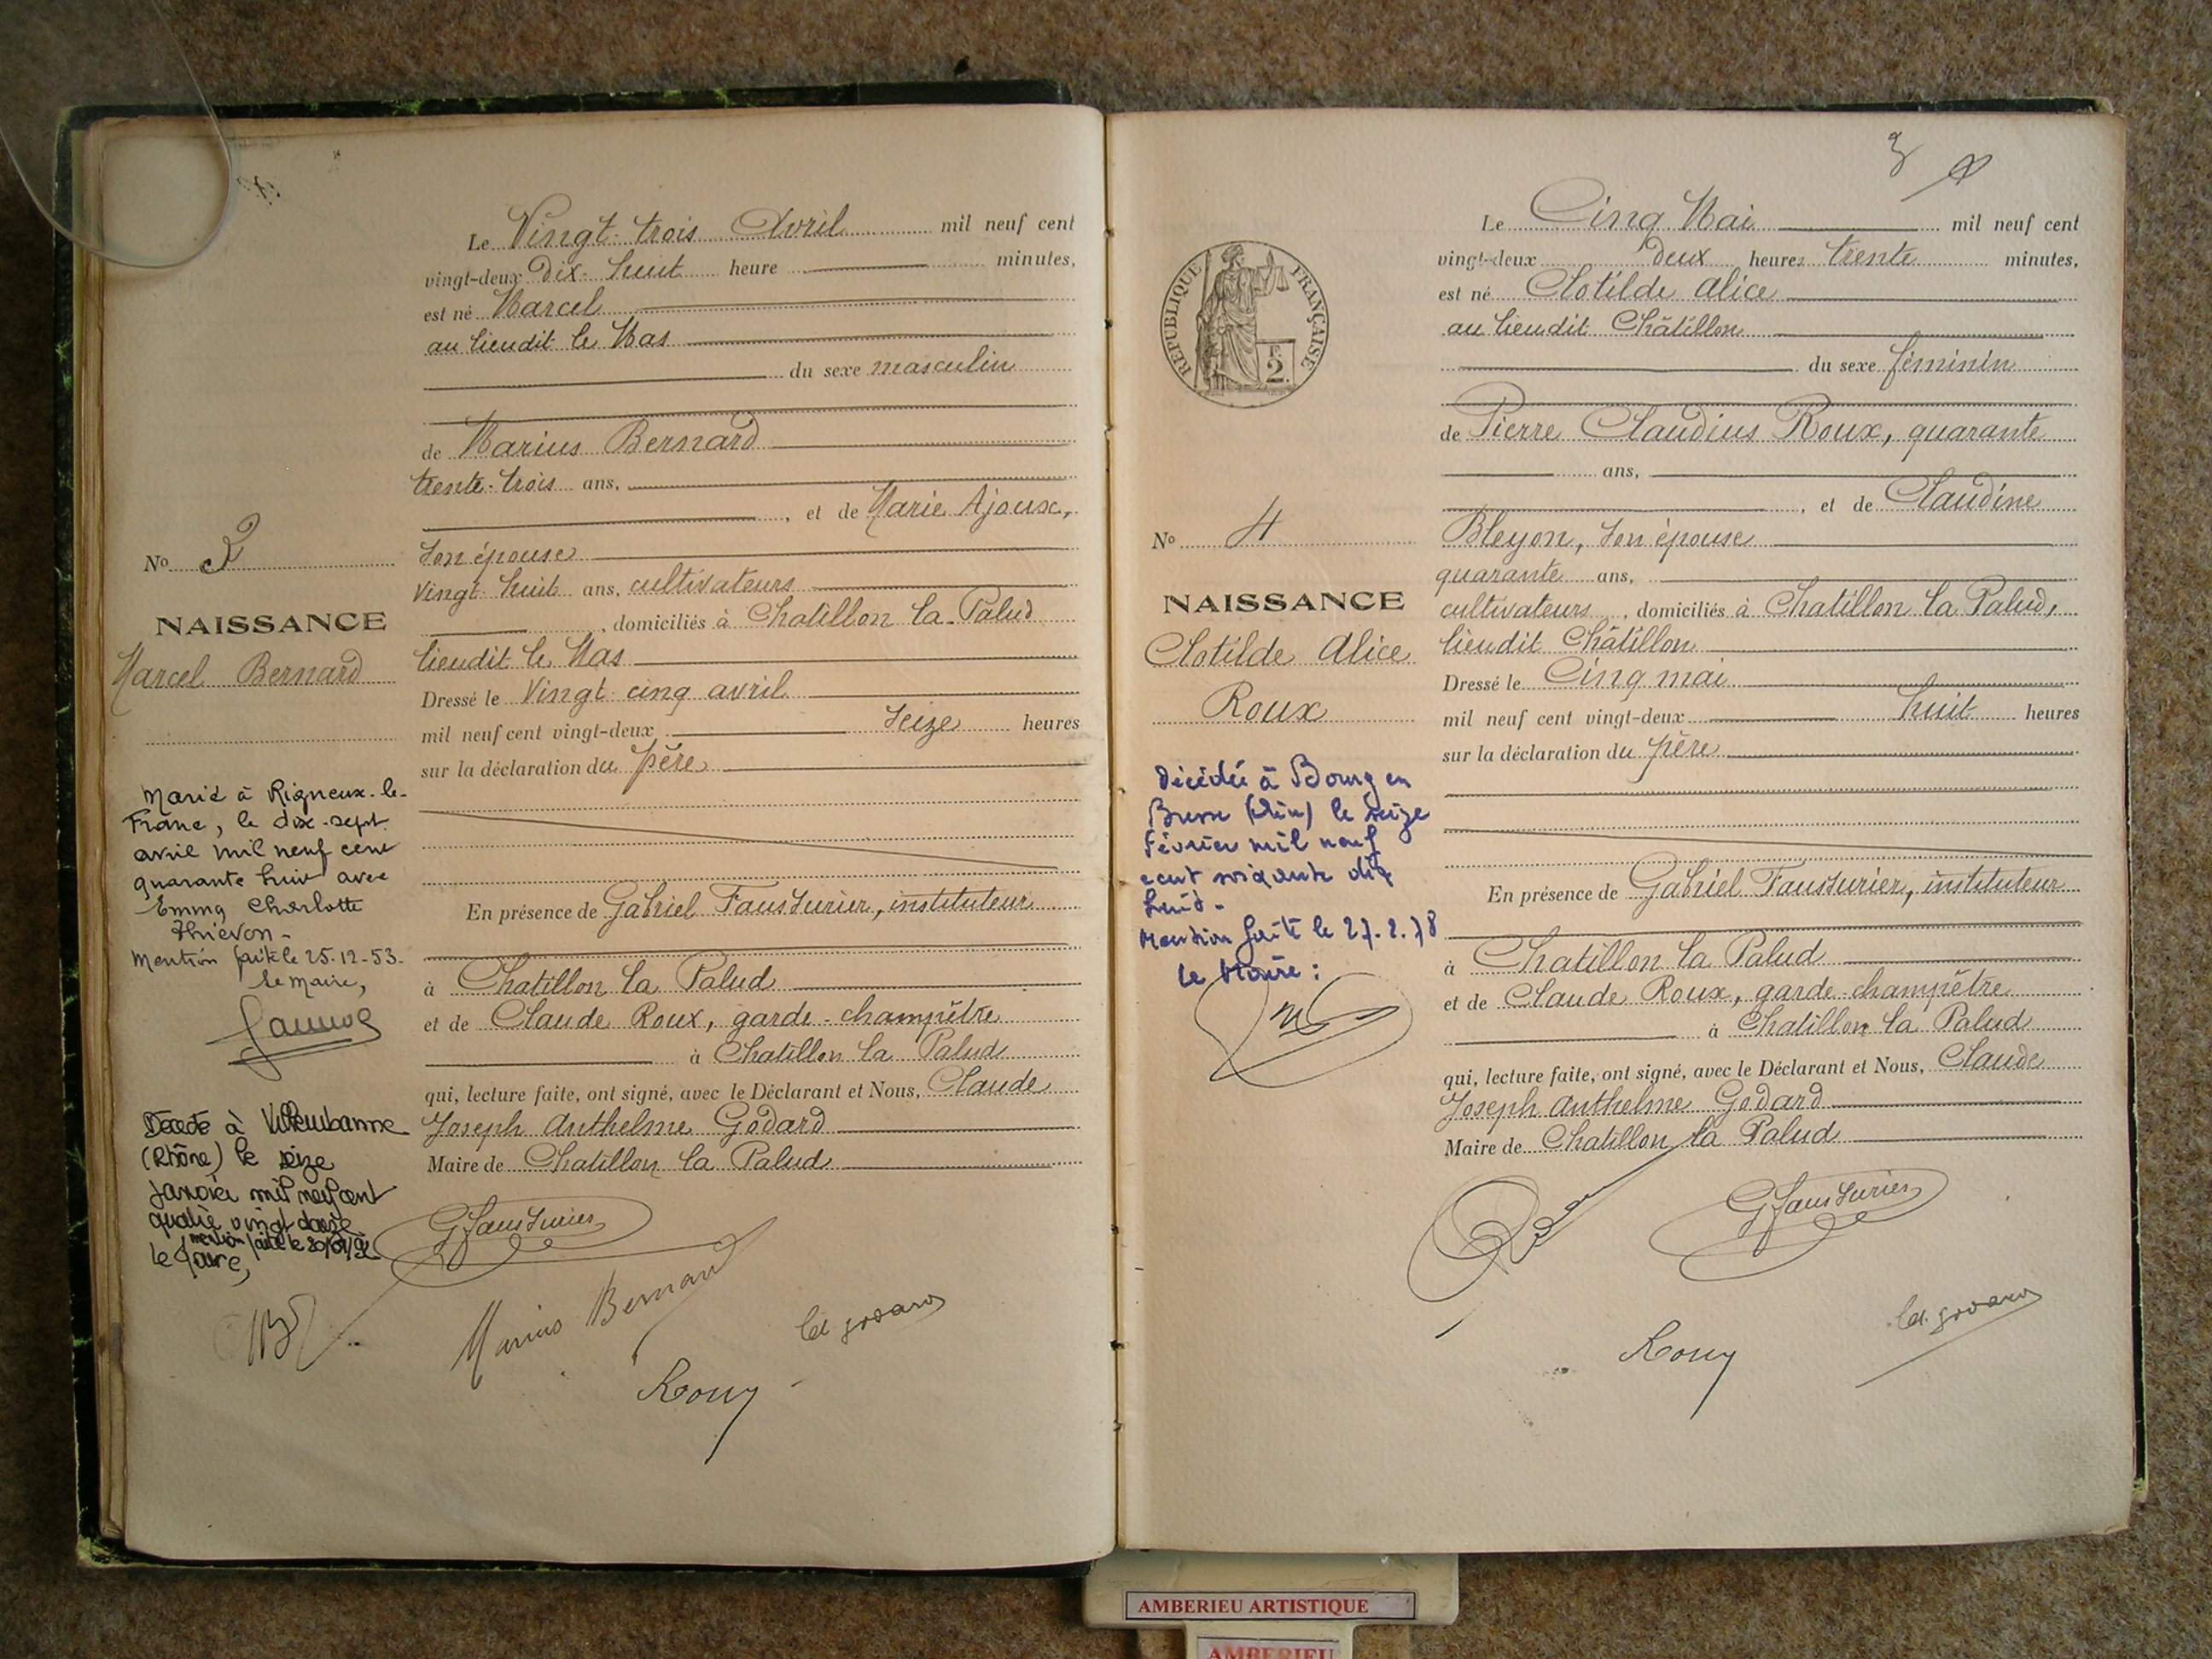 Le Vingt-trois Avril mil neuf cent
vingt-deux Dix-huit heure minutes,
est né Marcel
au lieudit le Mas
du sexe masculin
de Marius Bernard
trente-trois ans,
, et de Marie Ajoux,
son épouse
vingt-huit ans, cultivateurs
, domiciliés à Chatillon la Palud
lieudit le Mas
Dressé le Vingt-cinq avril
mil neuf cent vingt-deux seize heures
sur la déclaration du père
En présence de Gabriel Fausturier, instituteur
à Chatillon la Palud
et de Claude Roux, garde-champêtre
à Chatillon la Palud
qui, lecture faite, ont signé, avec le Déclarant et Nous, Claude
Joseph Anthelme Godard
Maire de Chatillon la Palud
No
NAISSANCE
Marcel Bernard
Marié à Rigneux-le-
Franc, le dix-sept
avril mil neuf cent
quarante huit avec
Emma Charlotte
Thiévon-
Mention faite le 25-12-53-
Le Maire,
Décédé à Villeurbanne
(Rhône) le seize
janvier mil neuf cent
quatre vingt
mention faite le
le Maire,
G Fausturier
Marius Bernard
Cl godard
Roux
3
REPUBLIQUE FRANÇAISE
2 F.
Le Cinq Mai mil neuf cent
vingt-deux deux heures trente minutes,
est né Clotilde Alice
au lieudit Châtillon
du sexe féminin
de Pierre Claudius Roux, quarante
ans,
, et de Claudine
Bleyon, son épouse
quarante ans,
cultivateurs, domiciliés à Chatillon la Palud,
lieudit Châtillon
Dressé le Cinq mai
mil neuf cent vingt-deux huit heures
sur la déclaration du père
En présence de Gabriel Fausturier, instituteur
à Chatillon la Palud
et de Claude Roux, garde-champêtre
à Chatillon la Palud
qui, lecture faite, ont signé, avec le Déclarant et Nous, Claude
Joseph Anthelme Godard
Maire de Chatillon la Palud
No 4
NAISSANCE
Clotilde Alice
Roux
Décédée à Bourg en
Bresse (Ain) le seize
Février mil neuf
cent soixante dix
huit-
Mention faite le 27-2-78
Le Maire :
G Fausturier
Cl. godard
Roux
AMBERIEU ARTISTIQUE
AMBERIEU